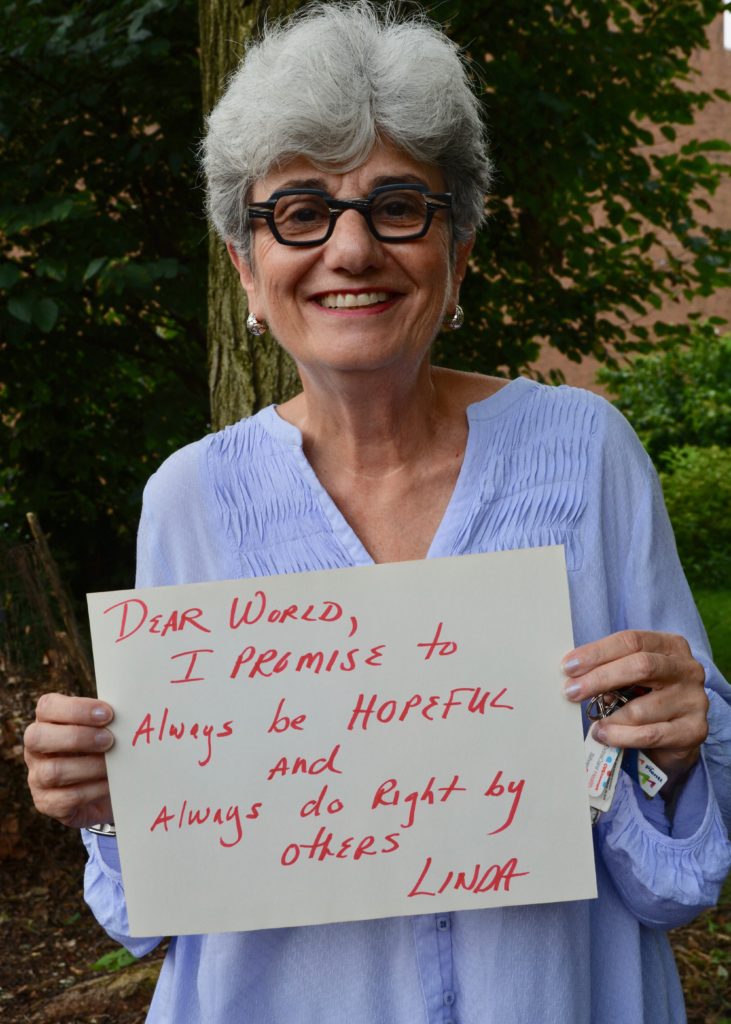 Dear World,
I PROMISE to
Always be HOPEFUL
and
Always do Right by
others
LINDA